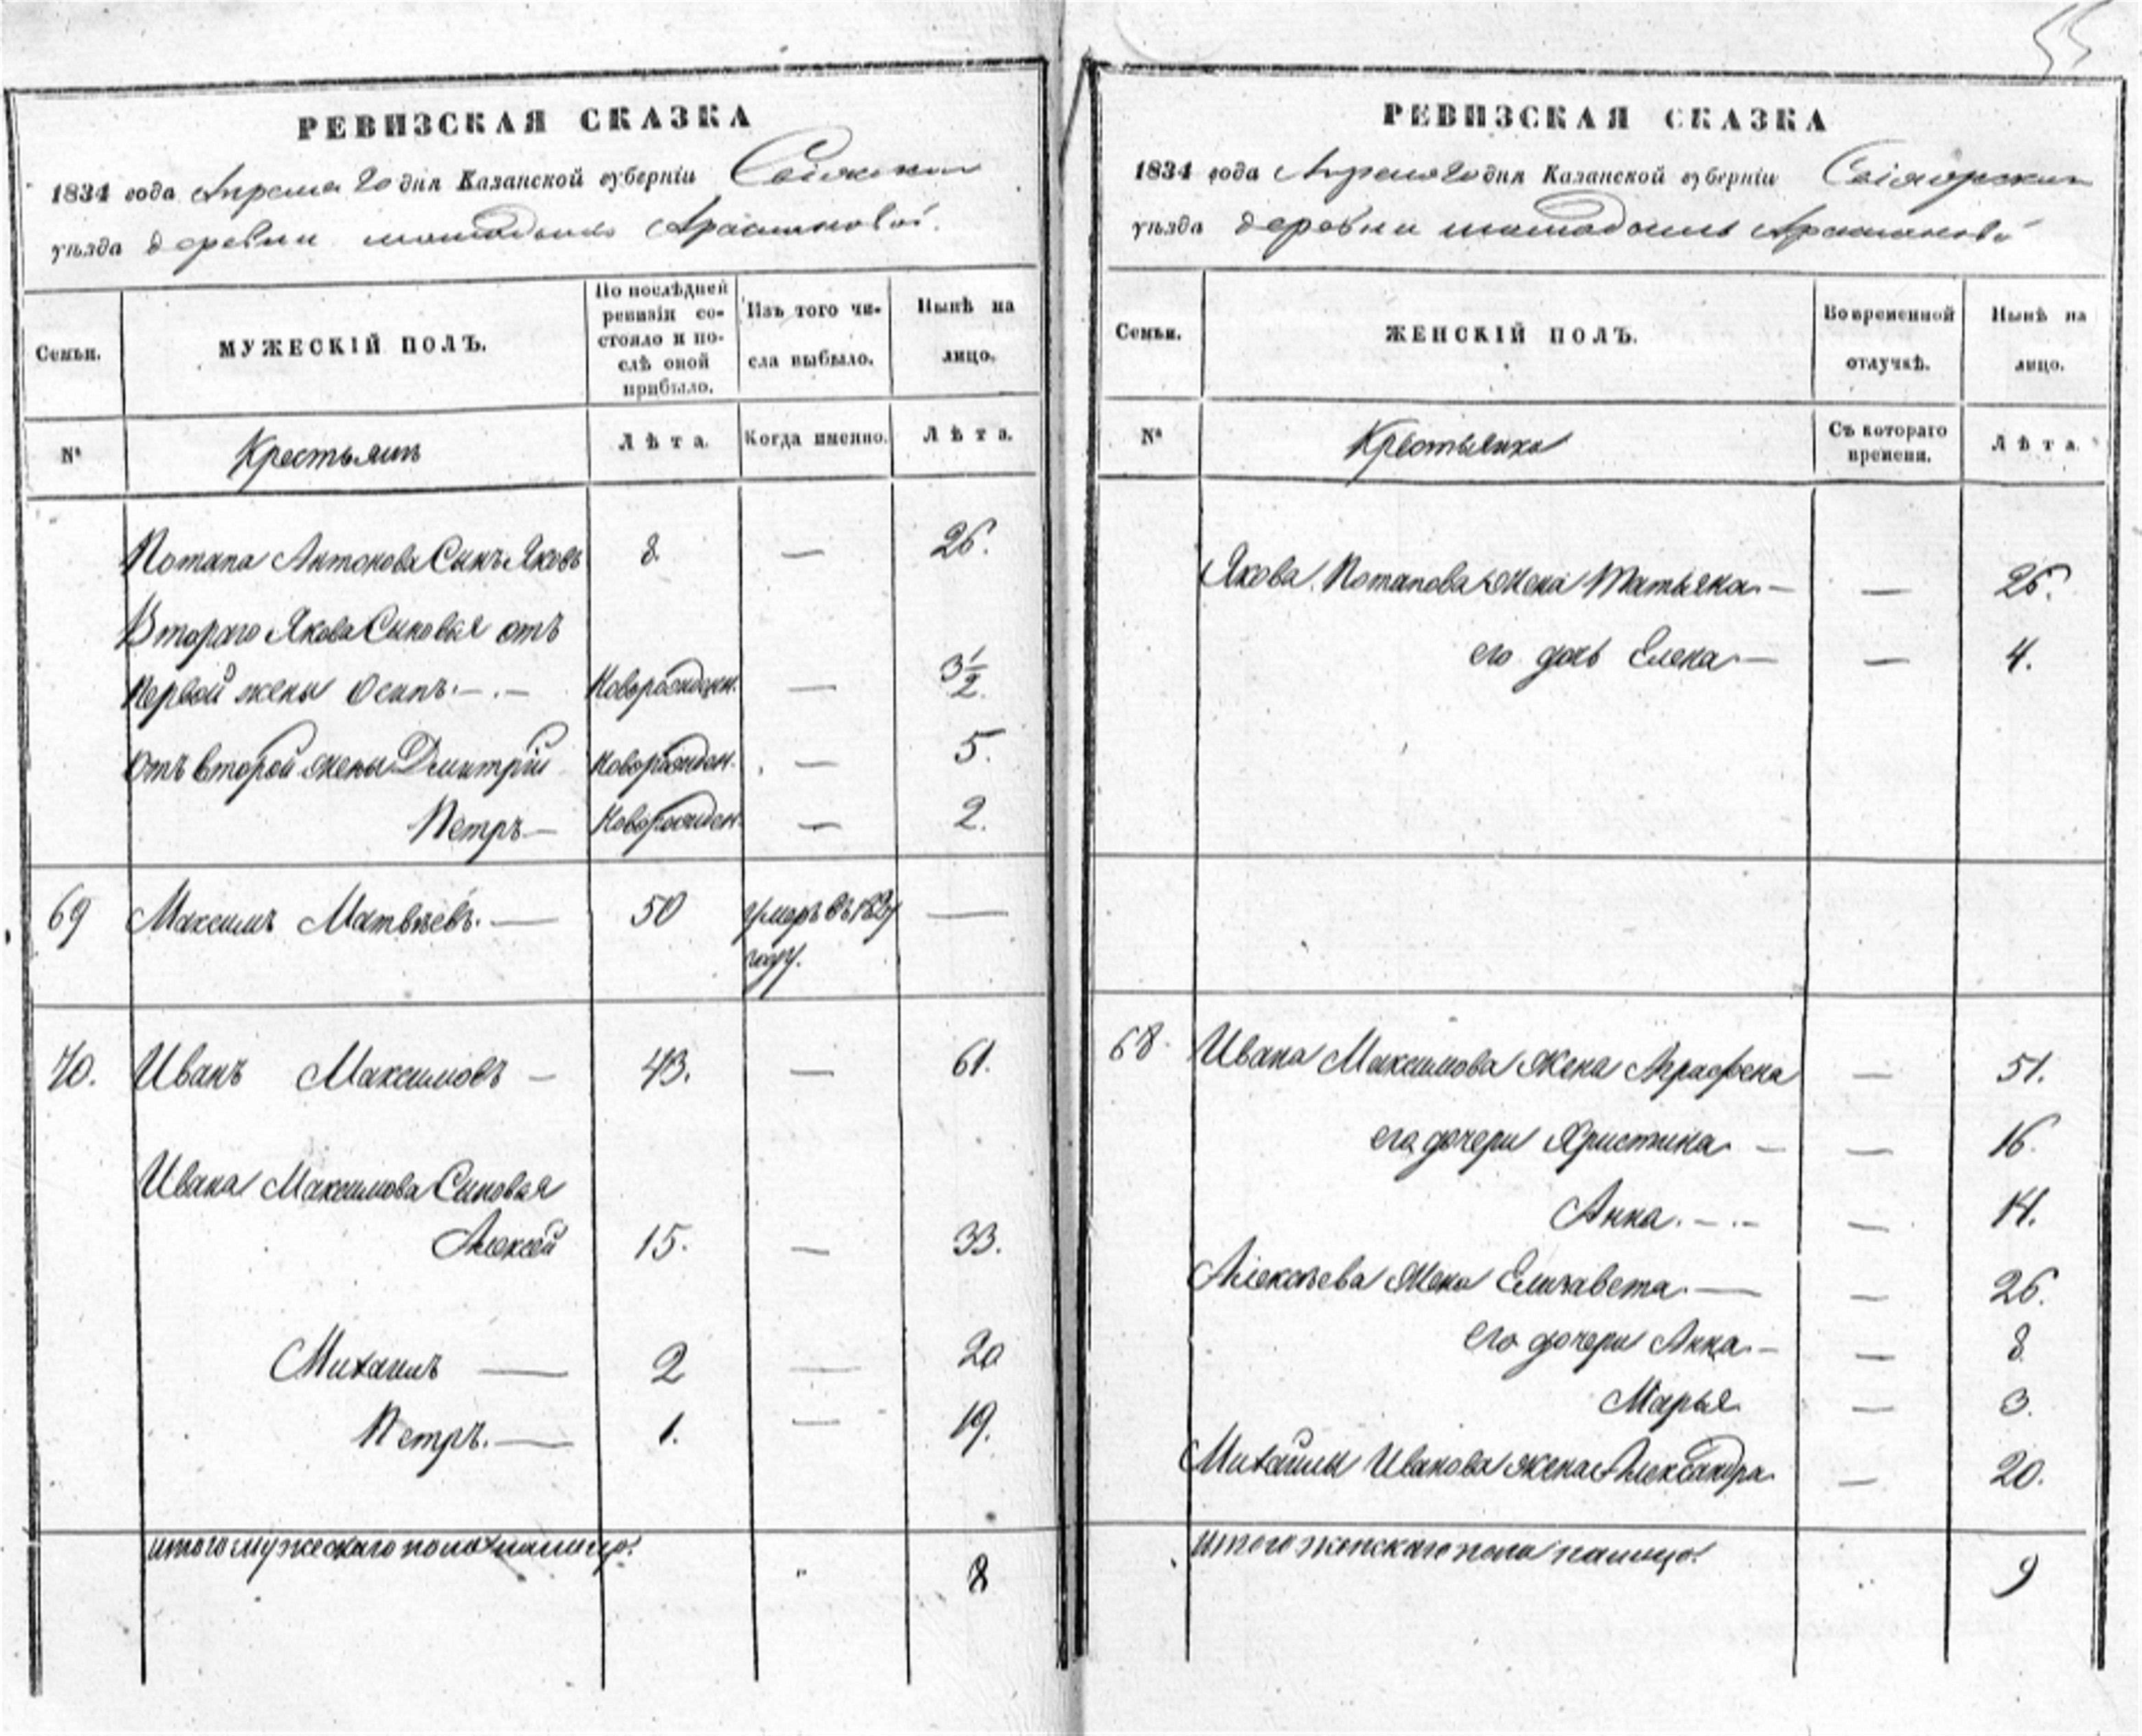 55
РЕВИЗСКАЯ СКАЗКА
1834 года Апреля 20 дня Казанской губерніи
уѣзда деревни
Семьи.
МУЖЕСКІЙ ПОЛЪ.
По послѣдней ревизіи со-
стояло и по-
слѣ оной
прибыло.
Изъ того чи-
сла выбыло.
Нынѣ на
лицо.
№
Крестьянъ
Лѣта.
Когда именно.
Лѣта.
Потапа Антонова Сынъ Яковъ 8 — 26.
Втораго Якова Сыновья отъ
первой жены Осипъ.—.— Новорожден. — 3 1/2.
отъ второй жены Дмитрій Новорожден. — 5.
Петръ— Новорожден. — 2.
69 Максимъ Матвѣевъ.— 50 умеръ въ
году. —
70. Иванъ Максимовъ — 43. — 61.
Ивана Максимова Сыновья
Алексѣй 15. — 33.
Михаилъ — 2 — 20
Петръ.— 1. — 19.
итого мужескаго пола налицо. 8
РЕВИЗСКАЯ СКАЗКА
1834 года Апреля 20 дня Казанской губерніи Свіяжскаго
уѣзда деревни
Семьи.
ЖЕНСКІЙ ПОЛЪ.
Во временной
отлучкѣ.
Нынѣ на
лицо.
№
Съ котораго
времени.
Лѣта.
Якова Потапова жена Татьяна.— — 26.
его дочь Елена— — 4.
68. Ивана Максимова жена Аграфена — 51.
его дочери Христина — — 16.
Анна.—.— — 14.
Алексѣева жена Елизавета.— — 26.
его дочери Анна.— — 8.
Марья — 3.
Михайлы Иванова жена Александра — 20.
итого женскаго пола налицо. 9